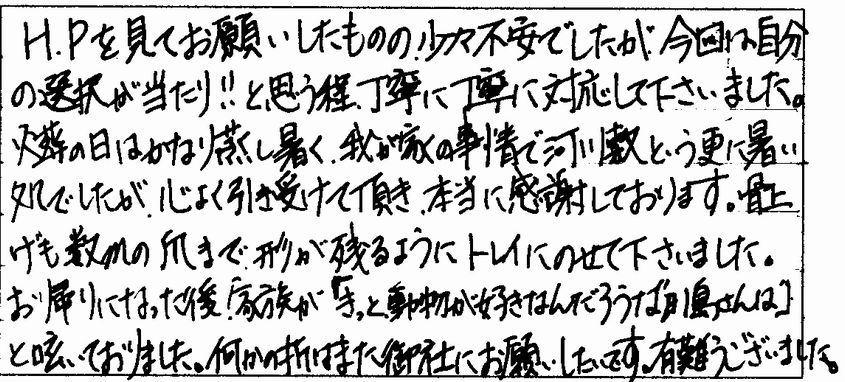 H.Pを見てお願いしたものの、少々不安でしたが、今回は自分
の選択が当たり!!と思う程、丁寧に丁寧に対応して下さいました。
火葬の日はかなり蒸し暑く、我が家の事情で河川敷という更に暑い
処でしたが、心よく引き受けて頂き、本当に感謝しております。骨上
げも数mmの爪まで形が残るようにトレイにのせて下さいました。
お帰りになった後、家族が「きっと動物が好きなんだろうな、川島さんは」
と呟いておりました。何かの折はまた御社にお願いしたいです。有難うございました。